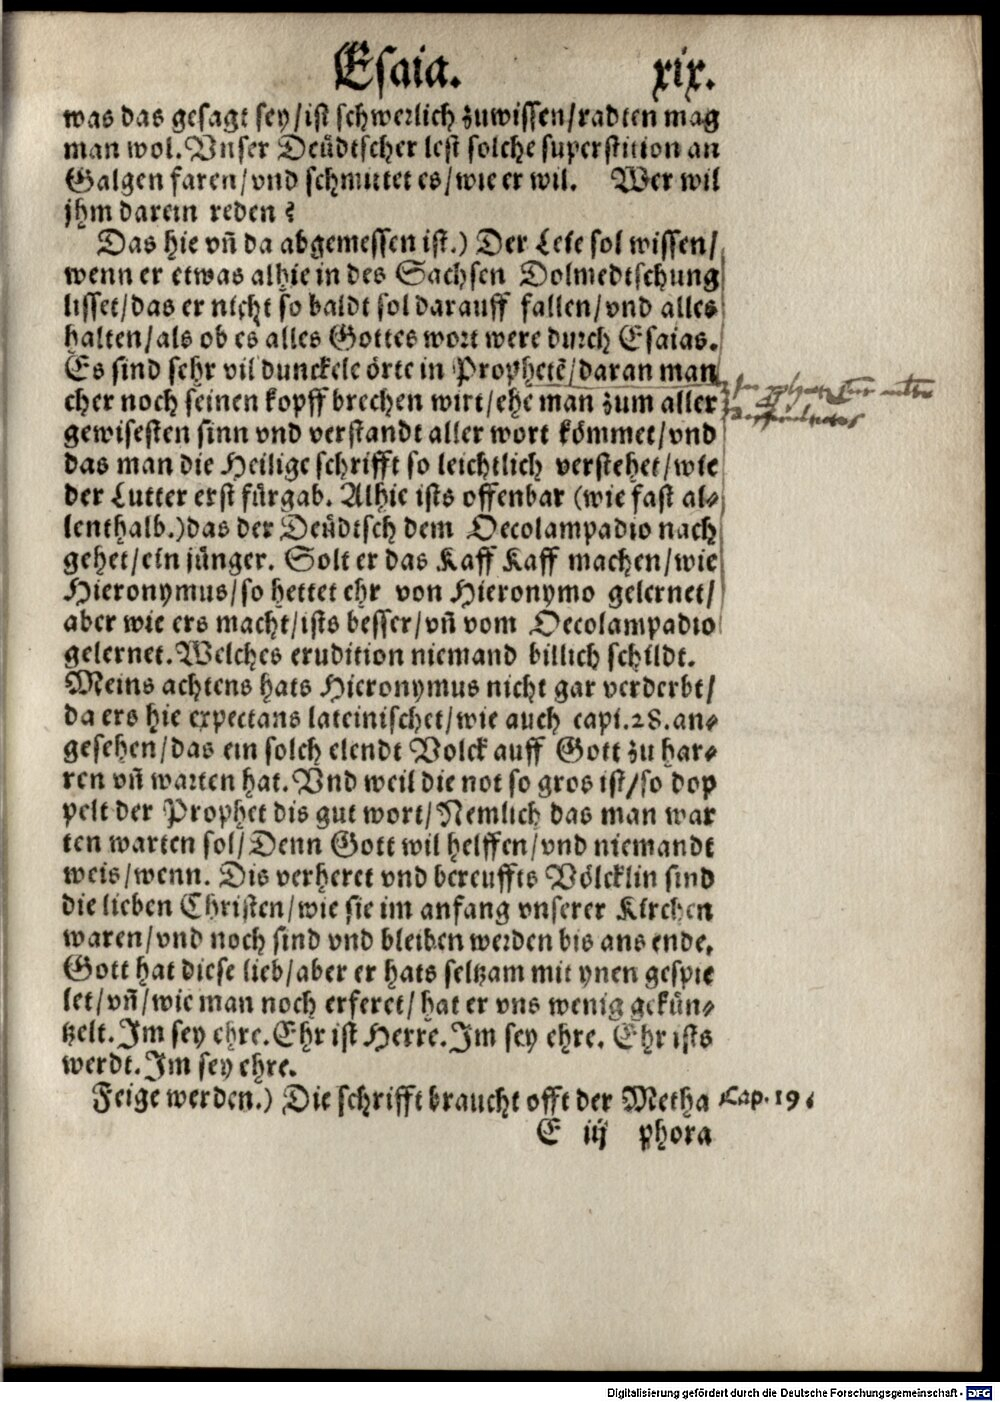 Esaia. xix.
was das gesagt sey/ist schwerlich zuwissen/radten mag
man wol. Vnser Deüdtscher lest solche superstition an
Galgen faren/vnd schmittet es/wie er wil. Wer wil
jhm darein reden?
Das hie vñ da abgemessen ist.) Der Lese sol wissen/
wenn er etwas alhie in des Sachsen Dolmedtschung
lisset/das er nicht so baldt sol darauff fallen/vnd alles
halten/als ob es alles Gottes wort were durch Esaias.
Es sind sehr vil dunckele örte in Prophetẽ/daran man
cher noch seinen kopff brechen wirt/ehe man zum aller
gewisesten sinn vnd verstandt aller wort kömmet/vnd
das man die Heilige schrifft so leichtlich verstehet/wie
der Lutter erst fürgab. Alhie ists offenbar (wie fast al⸗
lenthalb.)das der Deüdtsch dem Oecolampadio nach
gehet/ein jünger. Solt er das Kaff Kaff machen/wie
Hieronymus/so hettet ehr von Hieronymo gelernet/
aber wie ers macht/ists besser/vñ vom Oecolampadio
gelernet. Welches erudition niemand billich schildt.
Meins achtens hats Hieronymus nicht gar verderbt/
da ers hie expectans lateinischet/wie auch capi.28.an⸗
gesehen/das ein solch elendt Volck auff Gott zu har⸗
ren vñ warten hat. Vnd weil die not so gros ist/so dop
pelt der Prophet dis gut wort/Nemlich das man war
ten warten sol/Denn Gott wil helffen/vnd niemandt
weis/wenn. Dis verheret vnd bereuffts Völcklin sind
die lieben Christen/wie sie im anfang vnserer Kirchen
waren/vnd noch sind vnd bleiben werden bis ans ende.
Gott hat diese lieb/aber er hats seltzam mit ynen gespie
let/vñ/wie man noch erferet/hat er vns wenig gekün⸗
tzelt. Im sey ehre. Ehr ist Herre. Im sey ehre. Ehr ists
werdt. Im sey ehre.
Feige werden.) Die schrifft braucht offt der Metha Cap. 19.
E iij phora
Digitalisierung gefördert durch die Deutsche Forschungsgemeinschaft - DFG